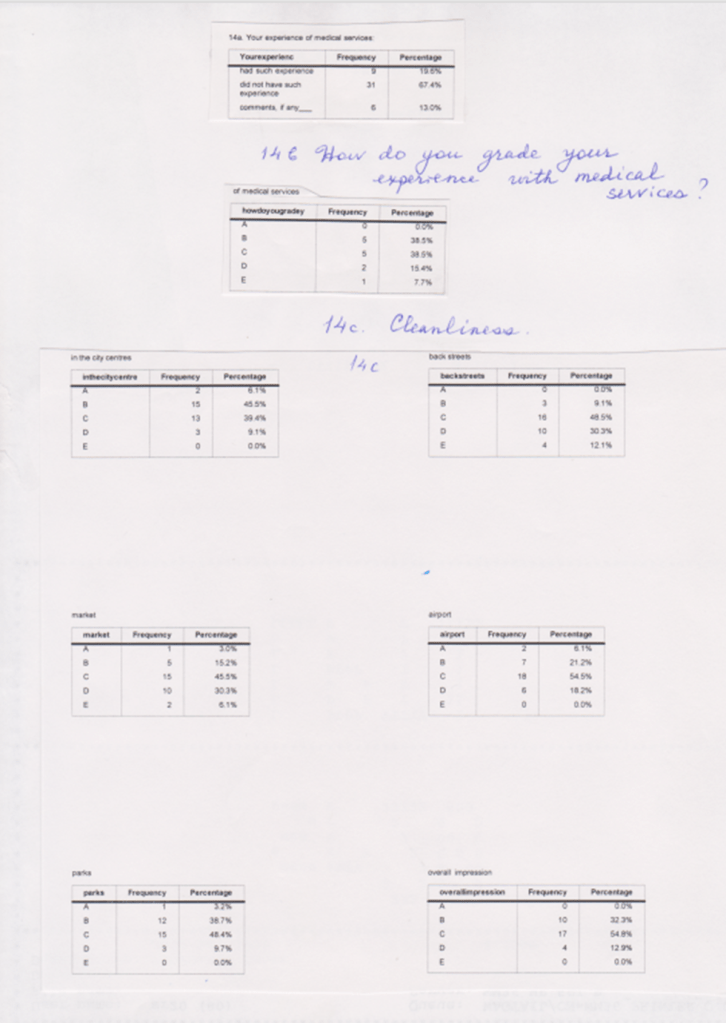 14a. Your experience of medical services:
Yourexperienc Frequency Percentage
had such experience 9 19.6%
did not have such 31 67.4%
experience
comments, if any___ 6 13.0%
14 b How do you grade your
experience with medical
services?
of medical services
howdoyougradey Frequency Percentage
A 0 0.0%
B 5 38.5%
C 5 38.5%
D 2 15.4%
E 1 7.7%
14c. Cleanliness.
14c
in the city centres
inthecitycentre Frequency Percentage
A 2 6.1%
B 15 45.5%
C 13 39.4%
D 3 9.1%
E 0 0.0%
back streets
backstreets Frequency Percentage
A 0 0.0%
B 3 9.1%
C 16 48.5%
D 10 30.3%
E 4 12.1%
market
market Frequency Percentage
A 1 3.0%
B 5 15.2%
C 15 45.5%
D 10 30.3%
E 2 6.1%
airport
airport Frequency Percentage
A 2 6.1%
B 7 21.2%
C 18 54.5%
D 6 18.2%
E 0 0.0%
parks
parks Frequency Percentage
A 1 3.2%
B 12 38.7%
C 15 48.4%
D 3 9.7%
E 0 0.0%
overall impression
overallimpression Frequency Percentage
A 0 0.0%
B 10 32.3%
C 17 54.8%
D 4 12.9%
E 0 0.0%